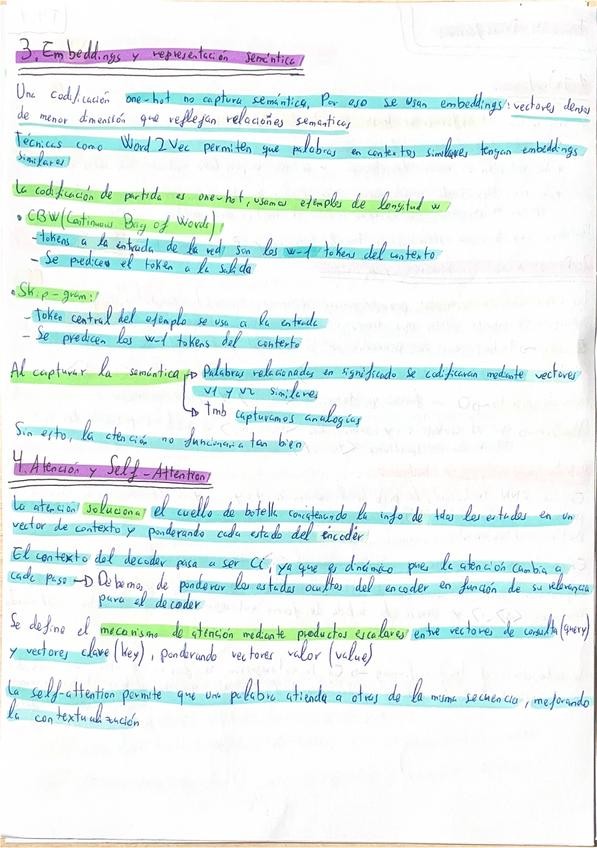 3. Embeddings y representación semántica
Una codificación one-hot no captura semántica, Por eso se usan embeddings: vectores densos
de menor dimensión que reflejan relaciones semanticas
Técnicas como Word2Vec permiten que palabras en contextos similares tengan embeddings
similares
La codificación de partida es one-hot, usamos ejemplos de longitud w
• CBW (Continuous Bag of Words):
- tokens a la entrada de la red son los w-1 tokens del contexto
- Se predice el token a la salida
• Skip-gram:
- Token central del ejemplo se usa a la entrada
- Se predicen los w-1 tokens del contexto
Al capturar la semántica → Palabras relacionadas en significado se codificaran mediante vectores
v1 y v2 similares
→ tmb capturamos analogías
Sin esto, la atención no funcionaria tan bien
4. Atención y Self-Attention
La atención soluciona el cuello de botella concatenando la info de tdos los estados en un
vector de contexto y ponderando cada estado del encoder
El contexto del decoder pasa a ser Ci, ya que es dinámico pues la atención cambia a
cada paso → Debemos de ponderar los estados ocultos del encoder en función de su relevancia
para el decoder
Se define el mecanismo de atención mediante productos escalares entre vectores de consulta (query)
y vectores clave (key), ponderando vectores valor (value)
La self-attention permite que una palabra atienda a otras de la misma secuencia, mejorando
la contextualización